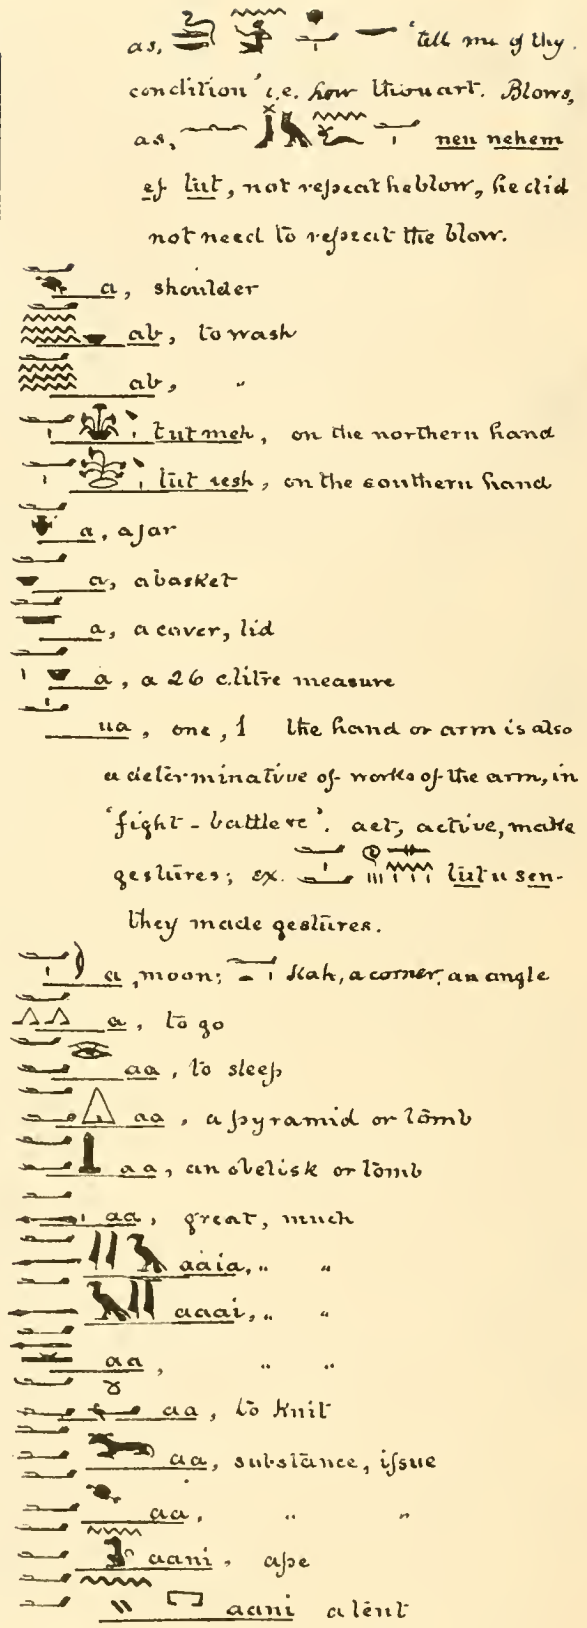 as, 'tell me of thy
condition' i.e. how thou art. Blows,
as, nen nehem
ef tut, not repeat he blow, he did
not need to repeat the blow.
a, shoulder
ab, to wash
ab, "
tut meh, on the northern hand
tut resh, on the southern hand
a, a jar
a, a basket
a, a cover, lid
a, a 26 c.litre measure
ua, one, 1 the hand or arm is also
a determinative of works of the arm, in
'fight - battle &c'. act, active, make
gestures; ex. tut u sen-
they made gestures.
a, moon; kah, a corner, an angle
a, to go
aa, to sleep
aa, a pyramid or tomb
aa, an obelisk or tomb
aa, great, much
aaia, " "
aaai, " "
aa, " "
aa, to knit
aa, substance, issue
aa, " "
aani, ape
aani a tent